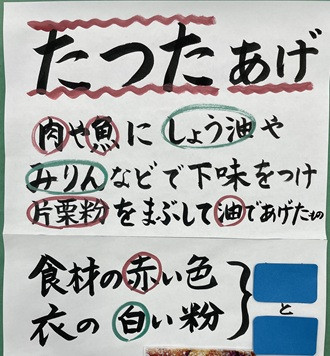 たつたあげ
肉や魚にしょう油や
みりんなどで下味をつけ
片栗粉をまぶして油であげたもの
食材の赤い色
衣の白い粉
と